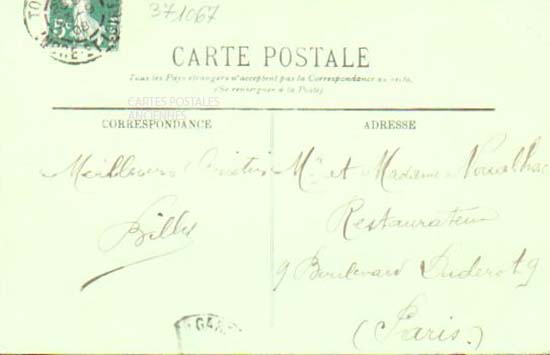 371067
5c
INDRE-ET-
CARTE POSTALE
Tous les Pays étrangers n'acceptent pas la Correspondance au recto.
(Se renseigner à la Poste)
CARTES POSTALES
ANCIENNES
CORRESPONDANCE
Meilleures
Billy
ADRESSE
Mr et Madame
Restaurateur
9 Boulevard Diderot 9
(Paris.)
GARE